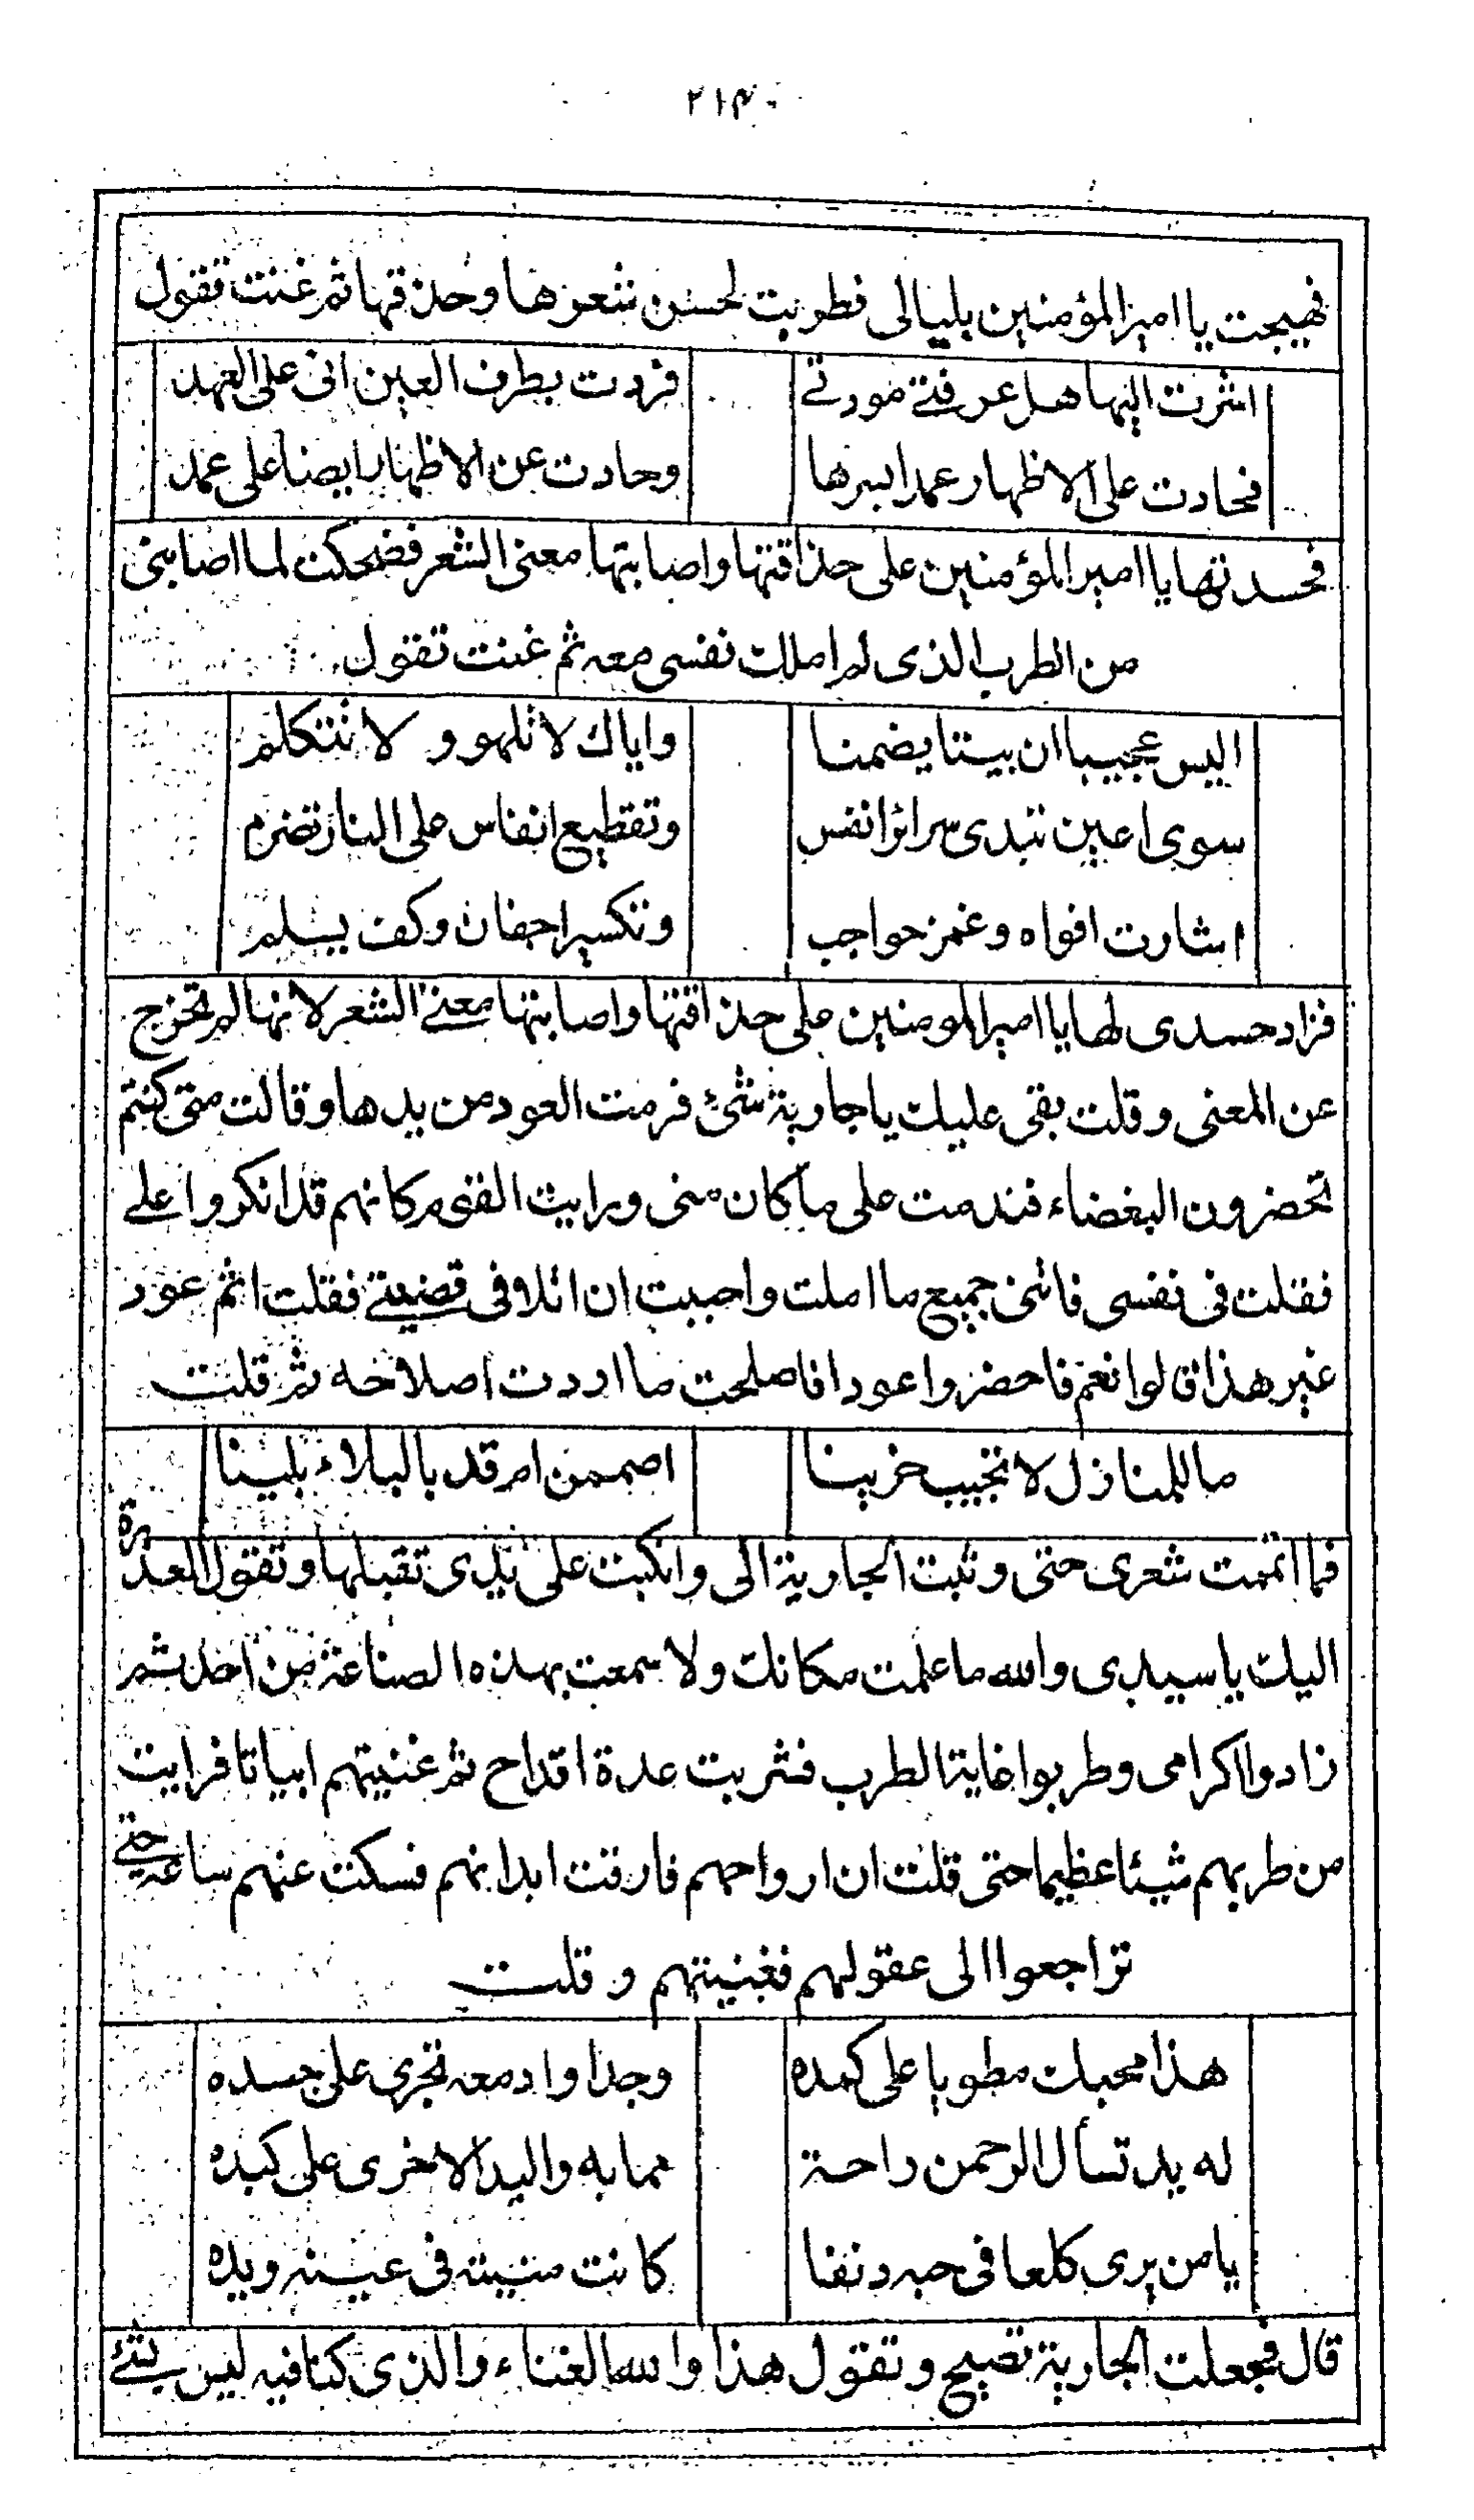 ٢١٣
فهيجت يا امير المؤمنين بليالى فطربت لحسن شعرها وحذقها ثم غنت تقول
اشرت اليها هل عرفتے مودتے فردت بطرف العين انى على العهد
فحادت على الاظهار عمدا لسرها وحادت عن الاظهار ايضا على عمد
فحسدتها يا امير المؤمنين على حذاقتها واصابتها معنى الشعر فضحكت لما اصابنى
من الطرب الذى لم املك نفسى معه ثم غنت تقول
اليس عجيبا ان بيتا يضمنا واياك لا نلهو و لا نتكلم
سوى اعين تبدى سرائر انفس وتقطيع انفاس على النار تضرم
اشارت افواه وغمز حواجب وتكسير اجفان وكف يسلم
فزاد حسدى لها يا امير المومنين على حذاقتها واصابتها معنے الشعر لانها لم تخرج
عن المعنى وقلت بقى عليك يا جارية شئ فرمت العود من يدها وقالت متى كنتم
تحضرون البغضاء فندمت على ما كان منى ورايت القوم كانهم قد انكروا علے
فقلت فى نفسى فاتنى جميع ما املت واحببت ان اتلافى قضيتے فقلت اثم عود
غير هذا قالوا نعم فاحضروا عودا فاصلحت ما اردت اصلاحه ثم قلت
ما للمنازل لا تجيب حزينا اصممن ام قد بالبلاء بلينا
فما اتممت شعرى حتى وثبت الجارية الى وانكبت على يدى تقبلها وتقول المعذرة
اليك يا سيدى والله ما علمت مكانك ولا سمعت بهذه الصناعة من احد ثم
زادوا اكرامى وطربوا غاية الطرب فشربت عدة اقداح ثم غنيتهم ابياتا فرايت
من طربهم شيئا عظيما حتى قلت ان ارواحهم فارقت ابدانهم فسكت عنهم ساعة حتے
تراجعوا الى عقولهم فغنيتهم و قلت
هذا محبك مطويا على كمده وجدا وادمعه تجرى على جسده
له يد تسأل الرحمن راحة مما به واليد الاخرى على كبده
يا من يرى كلعا فى حبه دنفا كانت منيته فى عينه ويده
قال فجعلت الجارية تصيح وتقول هذا والله الغناء والذى كنا فيه ليس بشئے